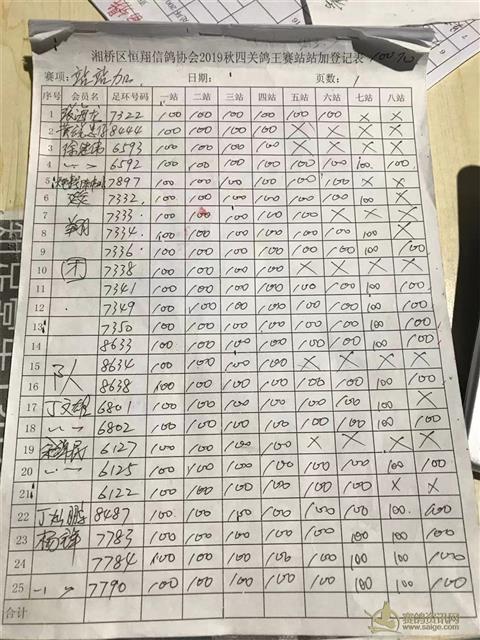 湘桥区恒翔信鸽协会2019秋四关鸽王赛站站加登记表 100元
赛项: 站站加 日期: 页数: 1
序号 会员名 足环号码 一站 二站 三站 四站 五站 六站 七站 八站
1 7322 100 100 100 100 100 100 X X
2 8444 100 100 100 100 X X X X
3 6593 100 100 100 100 X X X X
4 〃 〃 6592 100 100 100 100 100 100 100 100
5 7897 100 100 100 100 100 100 X X
6 7332 100 100 100 100 100 100 100 X
7 7333 100 100 100 100 100 X X X
8 翔 7334 100 100 100 100 100 100 100 X
9 7336 100 100 100 100 100 100 100 100
10 7338 100 100 100 100 X X X X
11 7341 100 100 100 100 100 100 100 100
12 7349 100 100 100 100 100 100 100 100
13 7350 100 100 100 100 100 100 100 100
14 8633 100 100 100 100 100 100 100 100
15 8634 100 100 100 100 X X X X
16 队 8638 100 100 100 100 100 100 100 100
17 6801 100 100 100 100 100 100 100 X
18 〃 〃 6802 100 100 100 100 100 100 100 100
19 6127 100 100 100 100 X X X X
20 〃 〃 6125 100 100 100 100 100 100 100 100
21 6122 100 100 100 100 100 100 X X
22 8487 100 100 100 100 100 100 100 100
23 杨锋 7783 100 100 100 100 100 100 100 100
24 7784 100 100 100 100 100 100 100 100
25 〃 〃 7790 100 100 100 100 100 100 100 100
合计
赛鸽资讯网
www.saige.com